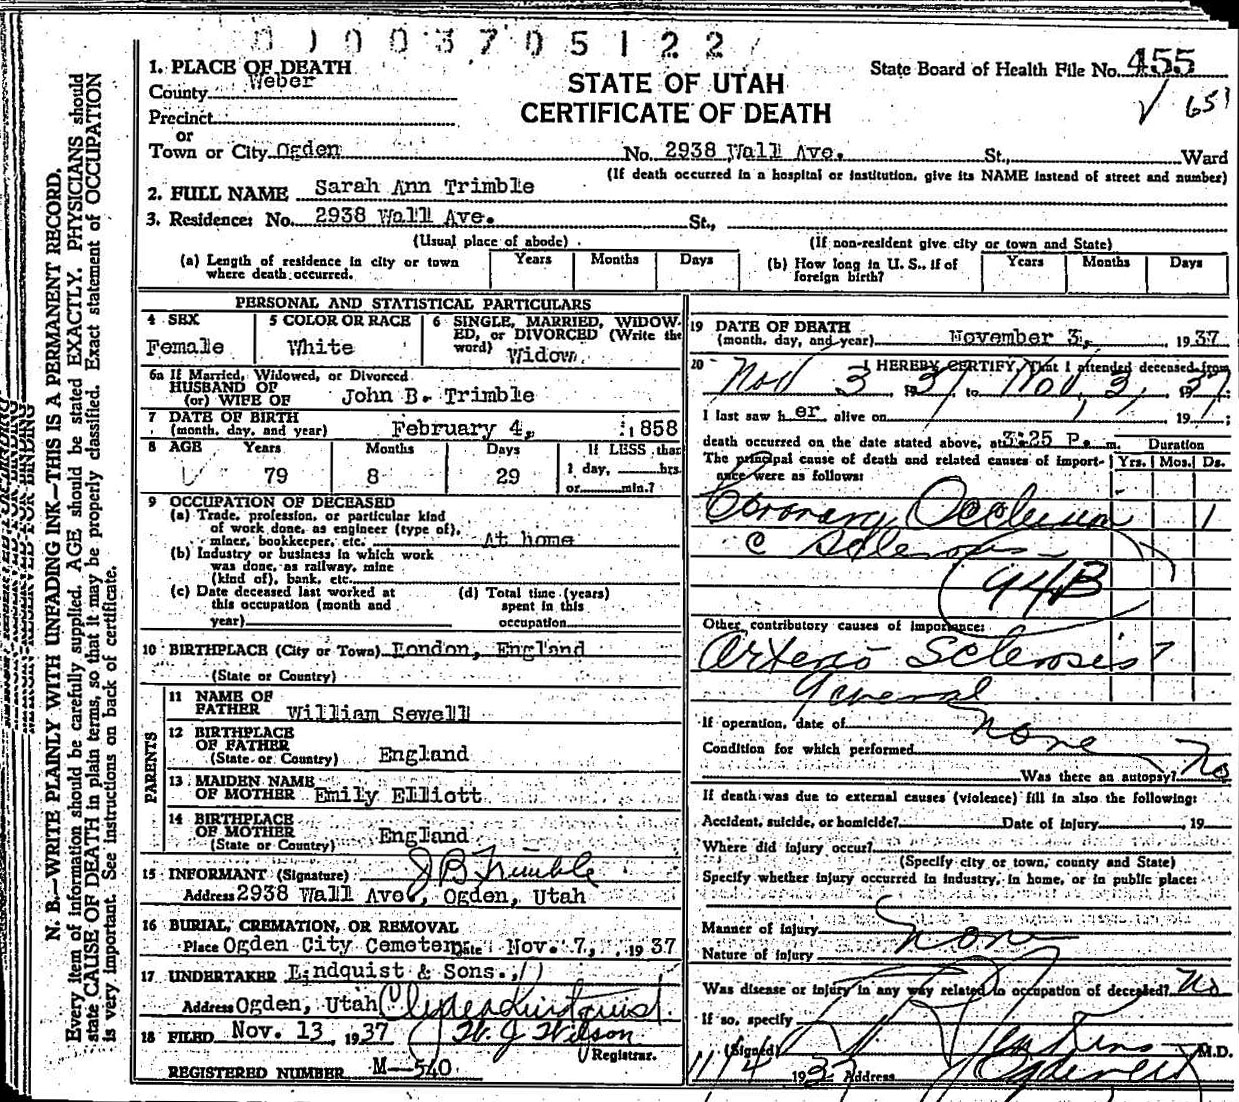 0 1 0 0 3 7 0 5 1 2 2
1. PLACE OF DEATH
County Weber
Precinct
or
Town or City Ogden No. 2938 Wall Ave. St., Ward
STATE OF UTAH
CERTIFICATE OF DEATH
State Board of Health File No. 455
√ 651
(If death occurred in a hospital or institution, give its NAME instead of street and number)
2. FULL NAME Sarah Ann Trimble
3. Residence: No. 2938 Wall Ave. St.,
(Usual place of abode) (If non-resident give city or town and State)
(a) Length of residence in city or town where death occurred. Years Months Days
(b) How long in U. S., if of foreign birth? Years Months Days
PERSONAL AND STATISTICAL PARTICULARS
4 SEX
Female
5 COLOR OR RACE
White
6 SINGLE, MARRIED, WIDOW-
ED, or DIVORCED (Write the
word) Widow
6a If Married, Widowed, or Divorced
HUSBAND OF
(or) WIFE OF John B. Trimble
7 DATE OF BIRTH
(month, day, and year) February 4, 1858
8 AGE Years Months Days If LESS than
79 8 29 1 day, hrs.
or min.?
9 OCCUPATION OF DECEASED
(a) Trade, profession, or particular kind
of work done, as engineer (type of),
miner, bookkeeper, etc. At home
(b) Industry or business in which work
was done, as railway, mine
(kind of), bank, etc.
(c) Date deceased last worked at
this occupation (month and
year)
(d) Total time (years)
spent in this
occupation
10 BIRTHPLACE (City or Town) London, England
(State or Country)
PARENTS
11 NAME OF
FATHER William Sewell
12 BIRTHPLACE
OF FATHER
(State or Country) England
13 MAIDEN NAME
OF MOTHER Emily Elliott
14 BIRTHPLACE
OF MOTHER
(State or Country) England
15 INFORMANT (Signature) J B Trimble
Address 2938 Wall Ave, Ogden, Utah
16 BURIAL, CREMATION, OR REMOVAL
Place Ogden City Cemetery Date Nov. 7, 1937
17 UNDERTAKER Lindquist & Sons.
Address Ogden, Utah Clyde Lindquist
18 FILED Nov. 13, 1937 W. J. Wilson
Registrar.
REGISTERED NUMBER M--540
19 DATE OF DEATH
(month, day, and year) November 3, 1937
20 I HEREBY CERTIFY, That I attended deceased from
Nov 3 1937, to Nov, 3, 1937
I last saw her alive on 193 ;
death occurred on the date stated above, at 3:25 P. m.
The principal cause of death and related causes of import-
ance were as follows:
Duration
Yrs. Mos. Ds.
Coronary Occlusion 1
c Sclerosis
94B
Other contributory causes of importance:
Arterio Sclerosis ?
General
If operation, date of none
Condition for which performed
Was there an autopsy? No
If death was due to external causes (violence) fill in also the following:
Accident, suicide, or homicide? Date of injury , 19
Where did injury occur?
(Specify city or town, county and State)
Specify whether injury occurred in industry, in home, or in public place:
Manner of injury none
Nature of injury
Was disease or injury in any way related to occupation of deceased? No
If so, specify
(Signed) Jenkins M.D.
11/4 1937 Address Ogden Ut
N. B.—WRITE PLAINLY WITH UNFADING INK—THIS IS A PERMANENT RECORD.
Every item of information should be carefully supplied. AGE should be stated EXACTLY. PHYSICIANS should
state CAUSE OF DEATH in plain terms, so that it may be properly classified. Exact statement of OCCUPATION
is very important. See instructions on back of certificate.